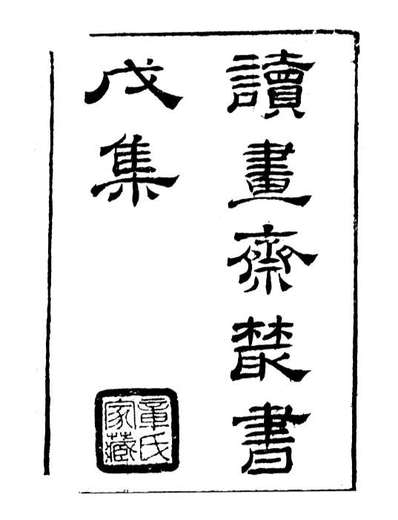 讀畫齋叢書
戊集
章氏
家藏